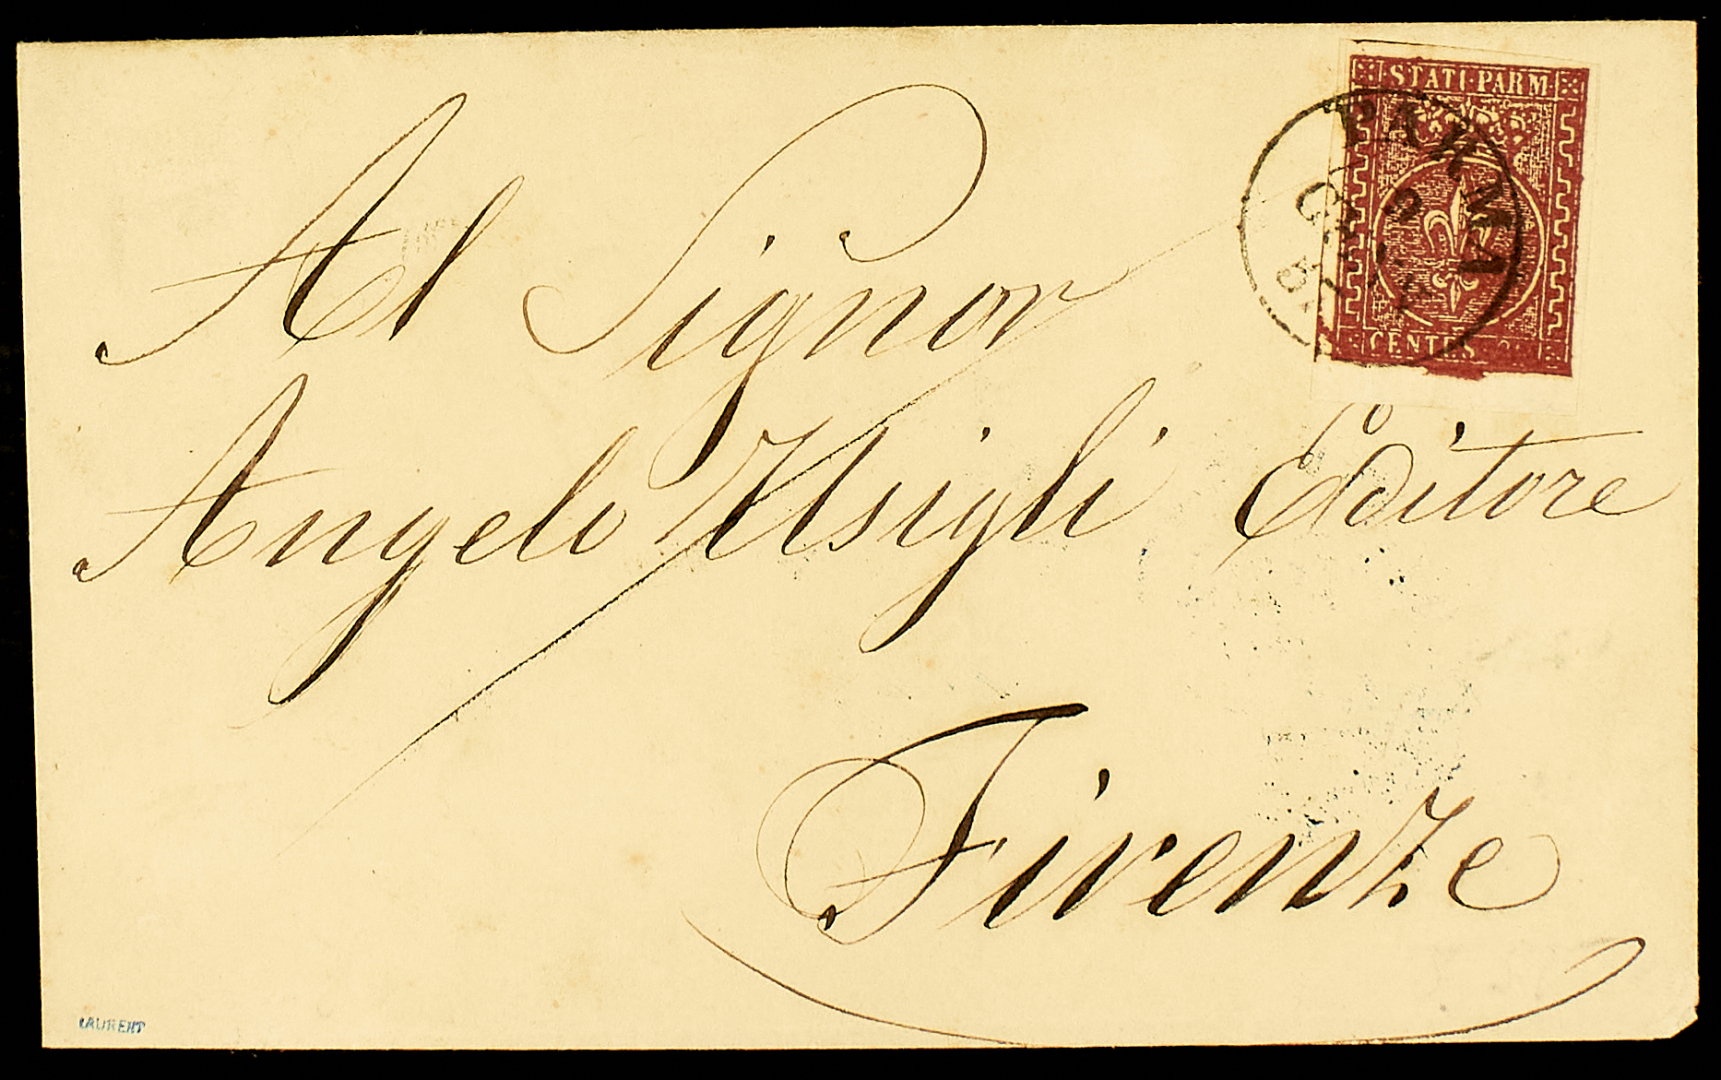 STATI·PARM
PARMA
CENTES
Al Signor
Angelo Usigli Editore
Firenze
LAURENT